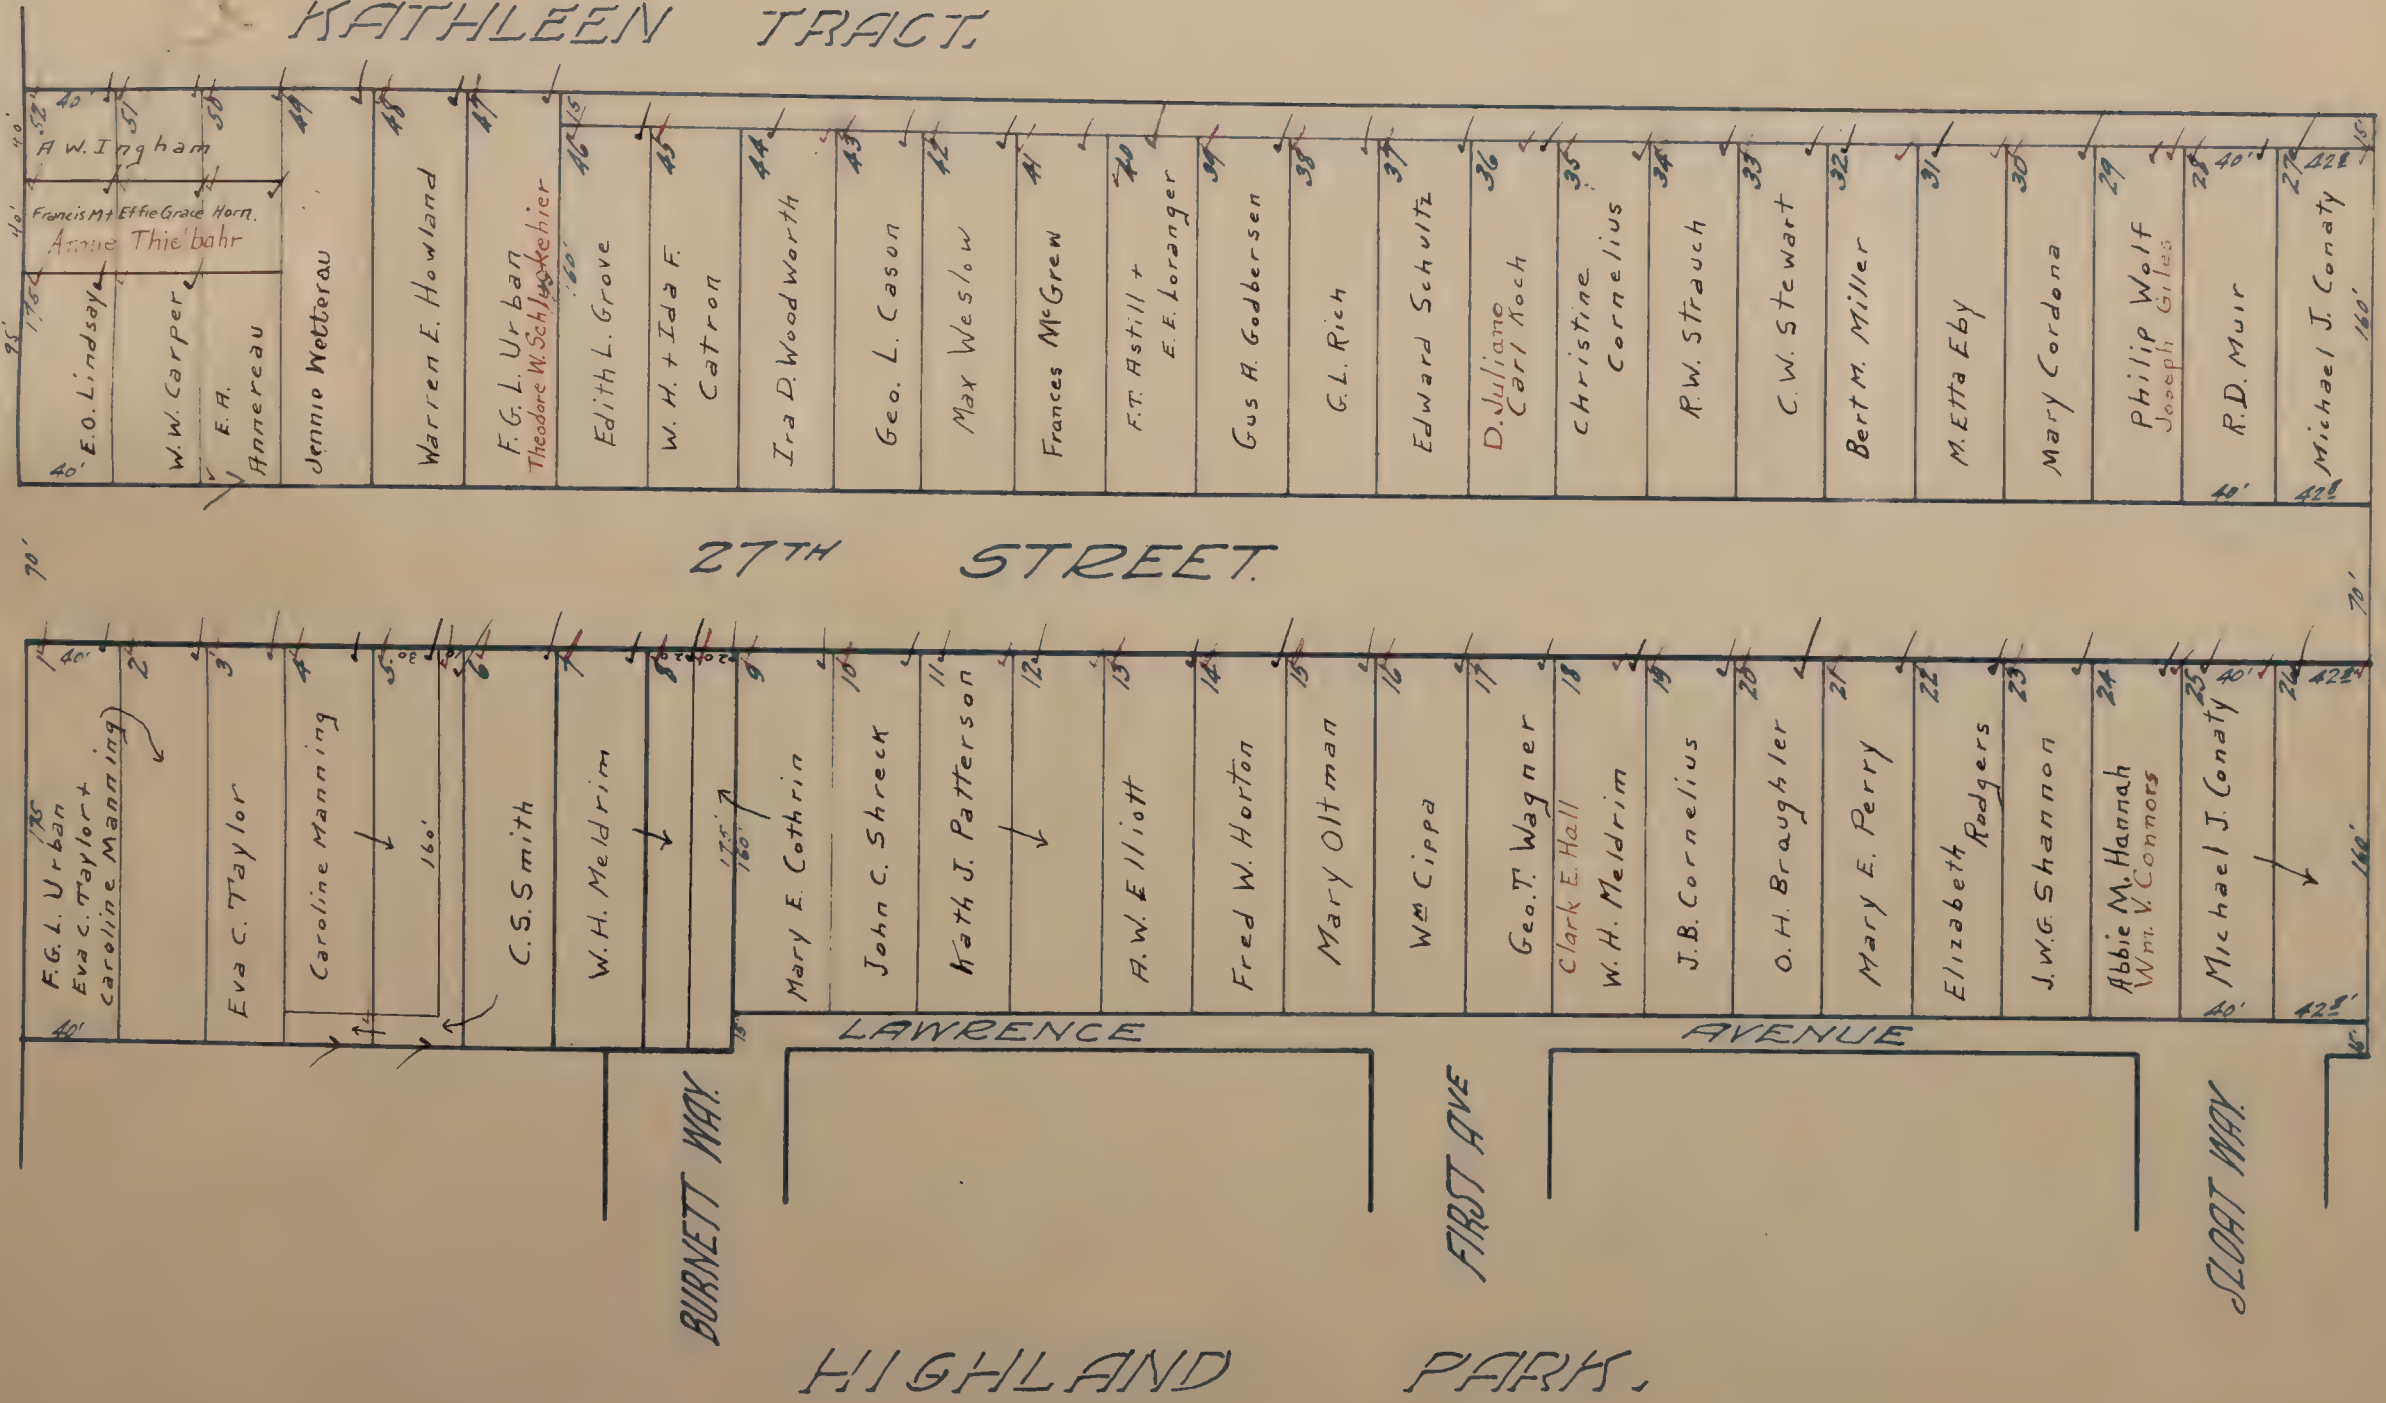 KATHLEEN TRACT.
40'
40'
95'
40'
52
51
50
49
48
47
15
46
45
44
43
42
41
40
39
38
37
36
35
34
33
32
31
30
29
28
40'
27
42⁸
15'
A W. Ingham
Francis M + Effie Grace Horn.
Thielbahr
175
E.O. Lindsay
40'
W.W. Carper
E. A.
Annereau
Jennie Wetterau
Warren E. Howland
F. G. L. Urban
Theodore W.
160'
Edith L. Grove
W. H. + Ida F.
Catron
Ira D. Woodworth
Geo. L. Cason
Max Weslow
Frances McGrew
F.T. Astill +
E. E. Loranger
Gus A. Godbersen
G. L. Rich
Edward Schultz
D. Juliano
Carl Koch
Christine
Cornelius
R.W. Strauch
C.W. Stewart
Bert M. Miller
M. Etta Eby
Mary Cordona
Philip Wolf
Joseph Giles
R.D. Muir
40'
Michael J. Conaty
160'
42⁸
70'
27TH STREET.
70'
1
40'
2
3
4
5
30
10
6
7
8
20
20
9
10
11
12
13
14
15
16
17
18
19
20
21
22
23
24
25
40'
26
42⁸
175
F. G. L. Urban
Eva C. Taylor +
Caroline Manning
40'
Eva C. Taylor
Caroline Manning
160'
C. S. Smith
W. H. Meldrim
175'
160'
15'
Mary E. Cothrin
John C. Shreck
Kath J. Patterson
A. W. Elliott
Fred W. Horton
Mary Oltman
Wm Cippa
Geo. T. Wagner
Clark E. Hall
W. H. Meldrim
J. B. Cornelius
O. H. Braughler
Mary E. Perry
Elizabeth
Rodgers
J. W. G. Shannon
Abbie M. Hannah
Wm. V. Connors
Michael J. Conaty
40'
160'
42⁸'
15'
LAWRENCE AVENUE
BURNETT WAY.
FIRST AVE
SLOAT WAY.
HIGHLAND PARK.